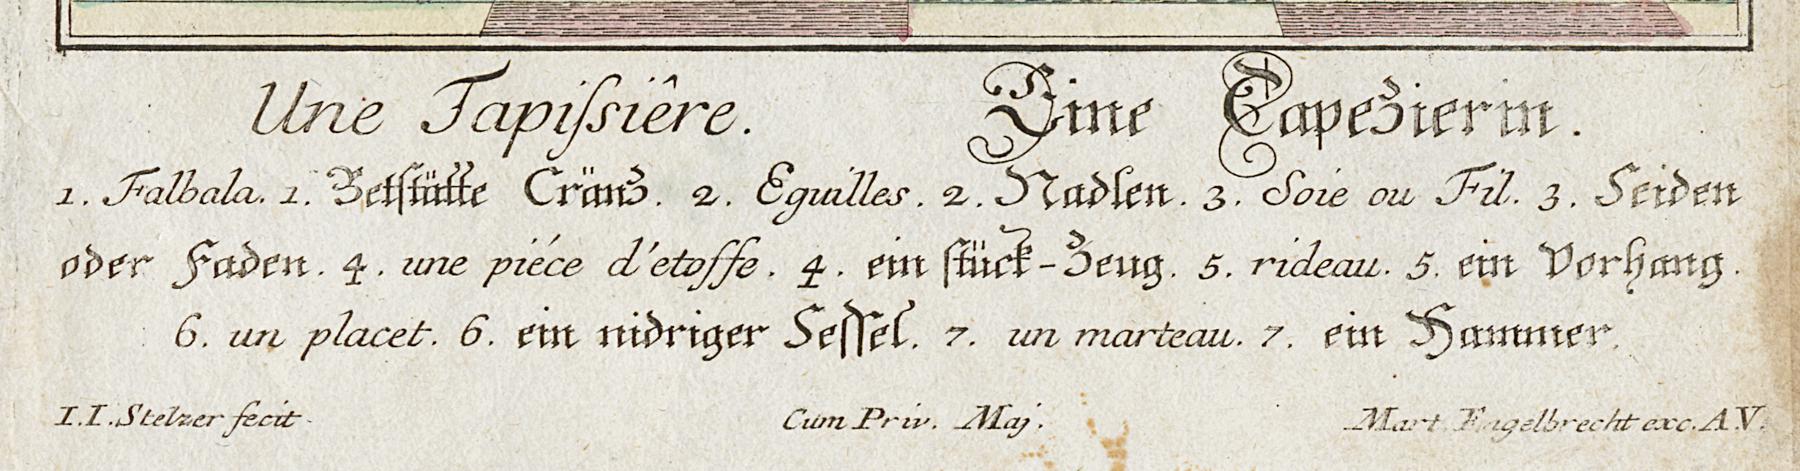 Une Tapiſsiêre. Eine Tapezierin.
1. Falbala. 1. Betſtätte Cränz. 2. Eguilles. 2. Nadlen. 3. Soie ou Fil. 3. Seiden
oder Faden. 4. une piéce d'etoffe. 4. ein ſtück-Zeug. 5. rideau. 5. ein Vorhang.
6. un placet. 6. ein nidriger Seſſel. 7. un marteau. 7. ein Hammer.
I.I. Stelzer fecit. Cum Priv. Maj. Mart. Engelbrecht exc. A.V.